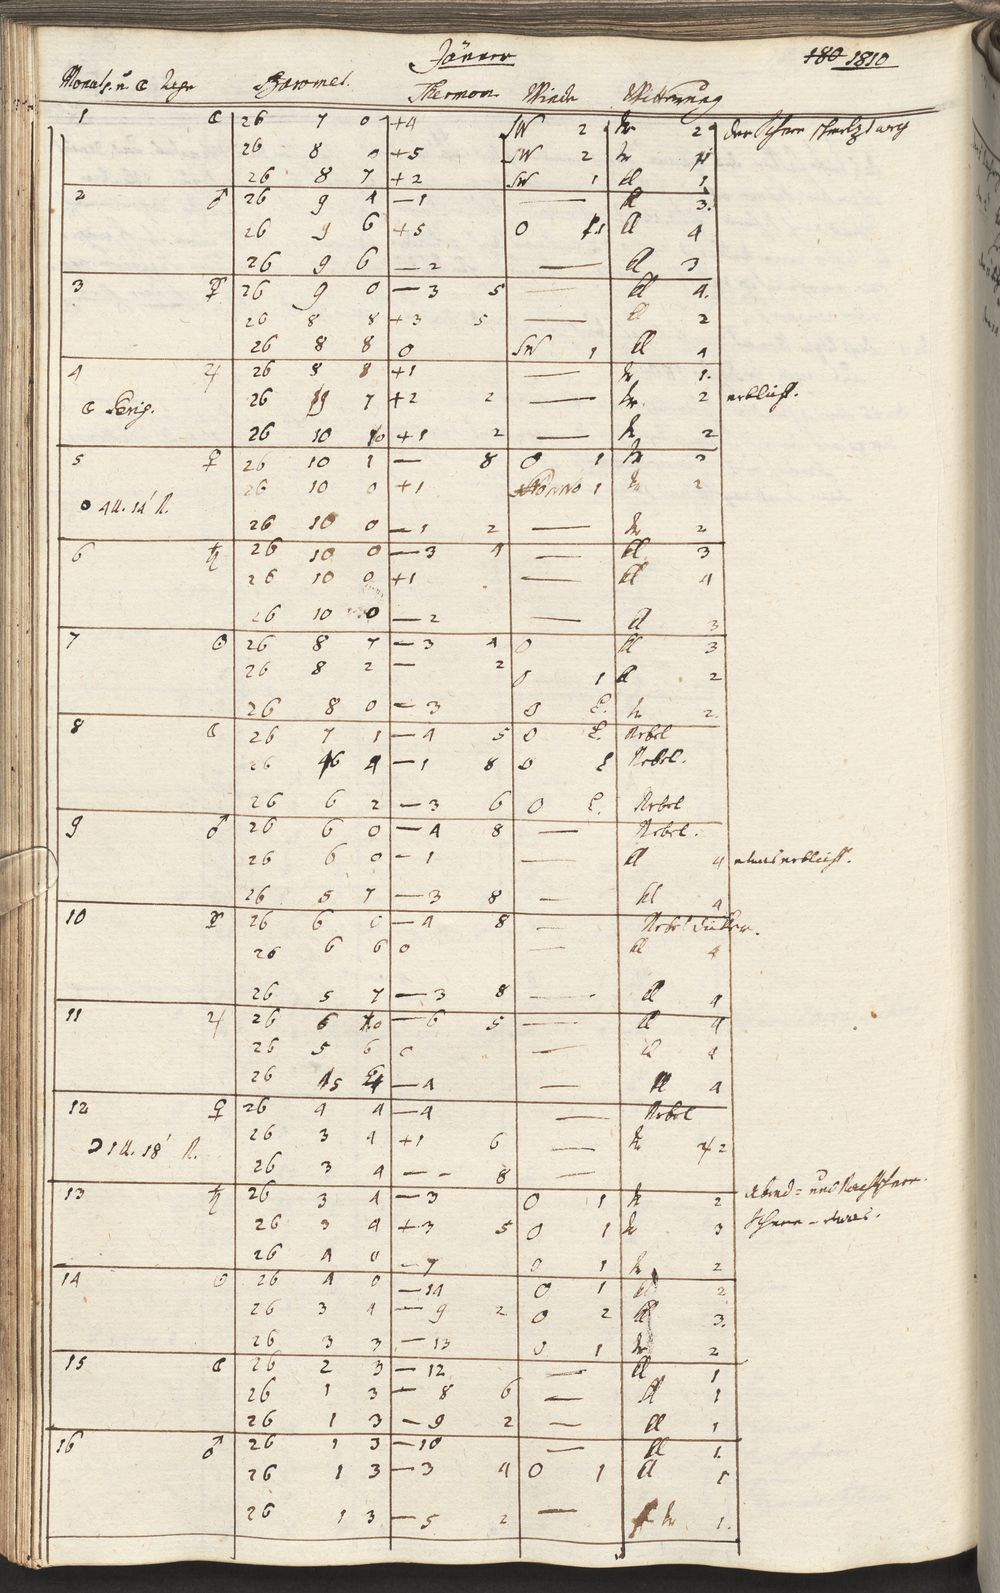 Jänner 180 1810
Monats u. ☾ Tage Baromet. Thermom Winde Witterung
1 ☾ 26 7 0 +4 SW 2 tr 2 der Schnee schmelzt weg
26 8 0 +5 SW 2 tr
26 8 7 +2 SW 1 kl 1
2 ♂ 26 9 4 —1 — kl 3.
26 9 6 +5 O 1 kl 4
26 9 6 —2 — kl 3
3 ☿ 26 9 0 —3 5 — kl 4.
26 8 8 +3 5 — kl 2
26 8 8 0 SW 1 kl 4
4 ♃ 26 8 8 +1 — tr 1.
☾ Perig. 26 9 7 +2 2 — tr 2
26 10 0 +1 2 — tr 2
5 ♀ 26 10 1 — 8 O 1 tr 2
26 10 0 +1 1 tr 2
4 U. 14'
26 10 0 —1 2 — tr 2
6 ♄ 26 10 0 —3 4 — kl 3
26 10 0 +1 — kl 4
26 10 0 —2 — kl 3
7 ☉ 26 8 7 —3 4 O kl 3
26 8 2 — 2 O 1 kl 2
26 8 0 —3 O tr 2.
8 ☾ 26 7 1 —4 5 O Nebel
26 6 4 —1 8 O Nebel.
26 6 2 —3 6 O Nebel
9 ♂ 26 6 0 —4 8 — Nebel.
26 6 0 —1 — kl 4
26 5 7 —3 8 — kl 4
10 ☿ 26 6 0 —4 8 — Nebel
26 6 6 0 — kl 4
26 5 7 —3 8 — kl 4
11 ♃ 26 6 0 —6 5 — kl 4
26 5 6 0 — kl 4
26 5 4 —4 — kl 4
12 ♀ 26 4 4 —4 — Nebel
☽ 1 U. 18' 26 3 4 +1 6 — tr 2
26 3 4 — 8 —
13 ♄ 26 3 4 —3 O 1 tr 2 Abend- und
26 3 4 +3 5 O 1 tr 3 Schnee - etwas.
26 4 0 —7 O 1 tr 2
14 ☉ 26 4 0 —14 O 1 kl 2
26 3 4 —9 2 O 2 kl 3.
26 3 3 —13 O 1 tr 2
15 ☾ 26 2 3 —12 — kl 1
26 1 3 —8 6 — kl 1
26 1 3 —9 2 — kl 1
16 ♂ 26 1 3 —10 — kl 1.
26 1 3 —3 4 O 1 kl 1
26 1 3 —5 2 — tr 1.